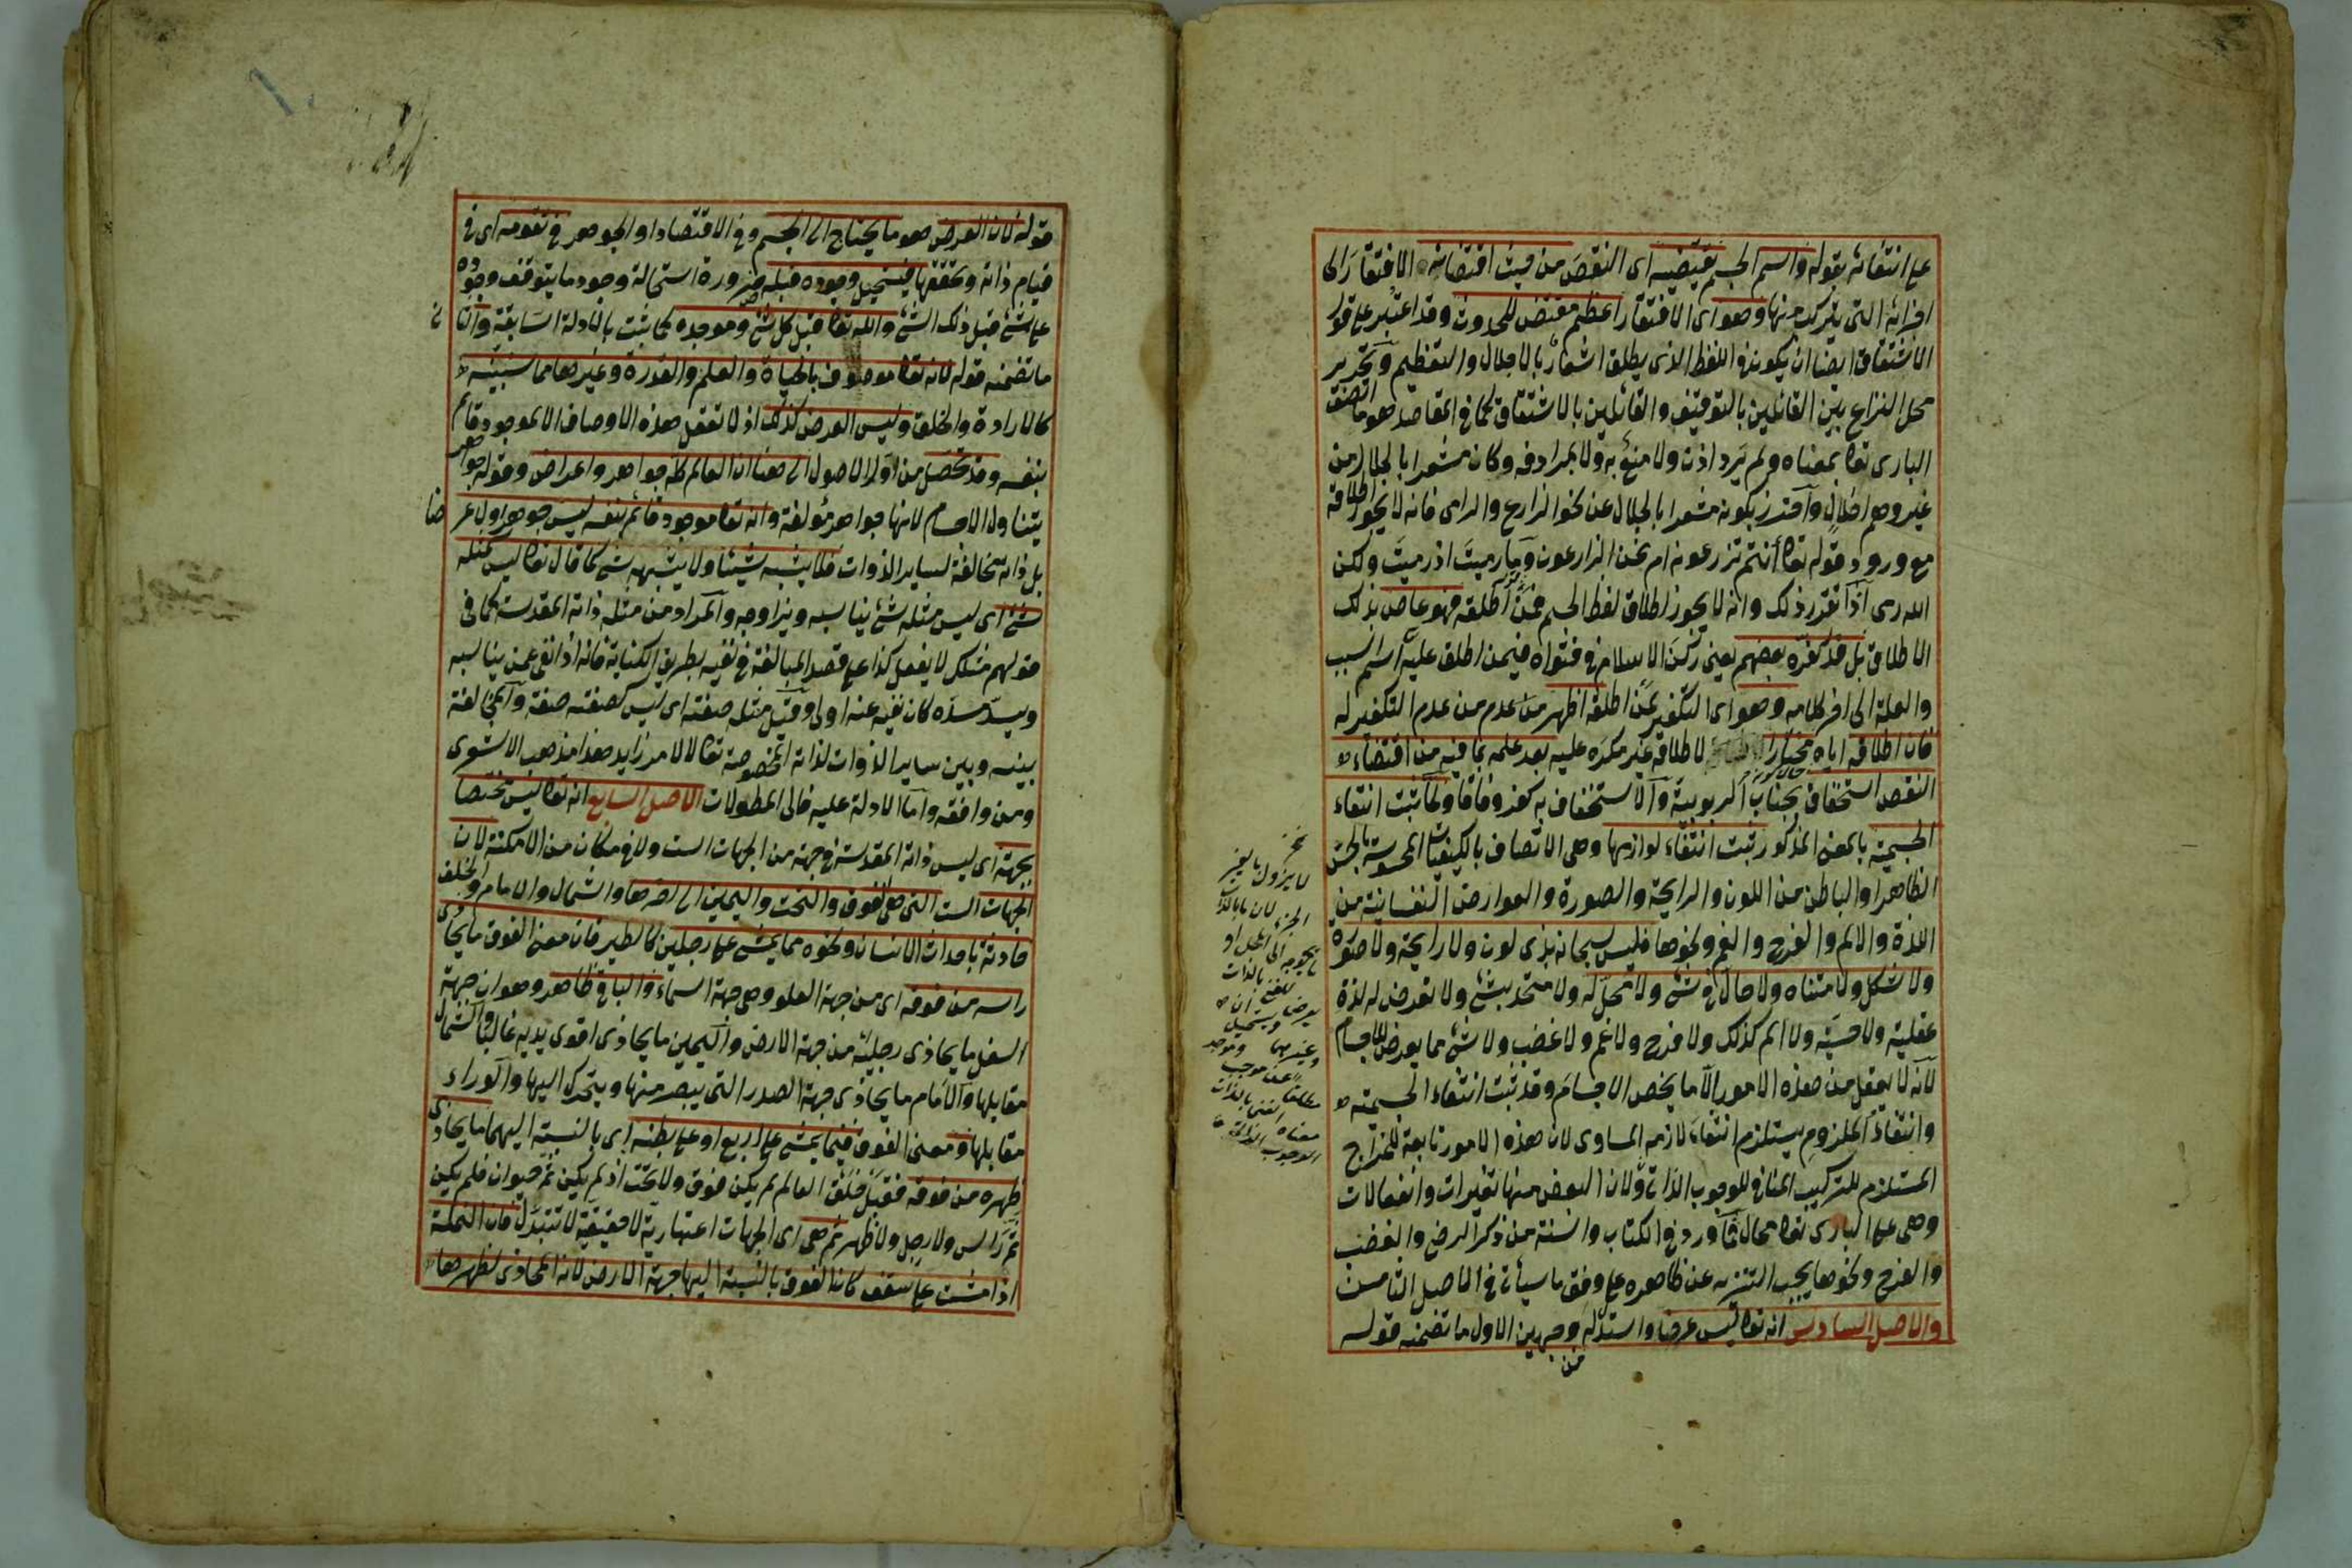 على انتفائه بقوله واسم الجسم يقتضيه اى النقص من حيث اقتضائه الافتقار الى
اجزائه التى يتركب منها وهو اى الافتقار اعظم مقتض للحدوث وقد اعتبر على قول
الاشتقاق ايضا ان يكون فى اللفظ الذى يطلق اشعار بالاجلال والتعظيم وتحرير
محل النزاع بين القائلين بالتوقيف والقائلين بالاشتقاق كما فى المقاصد هو ما اتصف
البارى تعا بمعناه ولم يرد اذن ولا منع به ولا بمرادفه وكان مشعرا بالجلال من
غير وهم اخلال واحترز بكونه مشعرا بالجلال عن نحو الزارع والرامى فانه لا يجوز اطلاقه
مع ورود قوله تعا أأنتم تزرعونه ام نحن الزارعون وما رميت اذ رميت ولكن
الله رمى اذا تقرر ذلك وانه لا يجوز اطلاق لفظ الجسم فمن اطلقه فهو عاص بذلك
الاطلاق بل قد كفره بعضهم يعنى ركن الاسلام فى فتواه فيمن اطلق عليه اسم السبب
والعلة الى اخر كلامه وهو اى التكفير لمن اطلقه اظهر من عدم من عدم التكفير له
فان اطلاقه اياه مختارا لاطلاقه غير مكره عليه بعد علمه بما فيه من اقتضاء
النقص استخفاف بجناب الربوبية والاستخفاف به كفر وفاقا ولما ثبت انتفاء
الجسمية بالمعنى المذكور ثبت انتفاء لوازمها وهى الاتصاف بالكيفيات المحسوسة بالحس
الظاهر او الباطن من اللون والرايحة والصورة والعوارض النفسانية من
اللذة والالم والفرح والغم ونحوها فليس سبحانه بذى لون ولا رايحة ولا صورة
ولا شكل ولا متناه ولا حال فى شئ ولا محل له ولا متحد بشئ ولا تعرض له لذة
عقلية ولا حسية ولا الم كذلك ولا فرح ولا غم ولا غضب ولا شئ مما يعرض للاجسام
لانه لا يعقل من هذه الامور الا ما يخص الاجسام وقد ثبت انتفاء الجسمية
وانتفاء الملزوم يستلزم انتفاء لازمه المساوى لان هذه الامور تابعة للمزاج
المستلزم للتركيب المنافى للوجوب الذاتى ولان البعض منها تغيرات وانفعالات
وهى على البارى تعا محال فما ورد فى الكتاب والسنة من ذكر الرضى والغضب
والفرح ونحوها يجب التنزيه عن ظاهره على وفق ما سيأتى فى الاصل الثامن
والاصل السادس انه تعا ليس عرضا واستدل له وجهين الاول ما تضمنه قوله
من
قوله لان العرض هو ما يحتاج الى الجسم وفى الاقتصاد او الجوهر فى تقومه اى فى
قيام ذاته وتحققها فيستحيل وجوده قبله ضرورة استحالة وجود ما يتوقف وجوده
على شئ قبل ذلك الشئ والله تعا قبل كل شئ وموجده كما ثبت بالادلة السابقة والثانى
ما تضمنه قوله لانه تعا موصوف بالحياة والعلم والقدرة وغيرها مما سنبينه
كالارادة والخلق وليس العرض كذلك اذ لا تعقل هذه الاوصاف الا لموجود قائم
بنفسه وقد تحصل من اول الاصول الى هنا ان العالم كله جواهر واعراض وقوله جواهر
يتناول الاجسام لانها جواهر مؤلفة وانه تعا موجود قائم بنفسه ليس جوهرا ولا عرضا
بل ذاته مخالفة لساير الذوات فلا يشبه شيئا ولا يشبهه شئ كما قال تعا ليس كمثله
شئ اى ليس مثله شئ يناسبه ويزاوجه والمراد من مثله ذاته المقدسة كما فى
قولهم مثلك لا يفعل كذا على قصد المبالغة فى نفيه بطريق الكناية فانه اذا نفى عمن يناسبه
ويسد مسده كان نفيه عنه اولى وقيل مثله صفته اى ليس كصفته صفة والمخالفة
بينه وبين ساير الذوات لذاته المخصوصة تعا لا لامر زايد هذا مذهب الاشعرى
ومن وافقه واما الادلة عليه فالى المطولات الاصل السابع انه تعا ليس مختصا
بجهة اى ليس ذاته المقدسة فى جهة من الجهات الست ولا فى مكان من الامكنة لان
الجهات الست التى هى الفوق والتحت واليمين الى اخرها والشمال والامام والخلف
حادثة باحداث الانسان ونحوه مما يمشى على رجلين كالطير فان معنى الفوق ما يحاذى
راسه من فوقه اى من جهة العلو وهى جهة السماء والباقى ظاهر وهو ان جهة
السفل ما يحاذى رجليه من جهة الارض واليمين ما يحاذى اقوى يديه غالبا والشمال
مقابلها والامام ما يحاذى جهة الصدر التى يبصر منها ويتحرك اليها والوراء
مقابلها ومعنى الفوق فيما يمشى على اربع او على بطنه اى بالنسبة اليهما ما يحاذى
ظهره من فوقه فقبل خلق العالم لم يكن فوق ولا تحت اذ لم يكن ثم حيوان فلم يكن
ثم راس ولا رجل ولا ظهر ثم هى اى الجهات اعتبارية لا حقيقية لا تتبدل فان النملة
اذا مشت على سقف كان الفوق بالنسبة اليها جهة الارض لانه المحاذى لظهرها